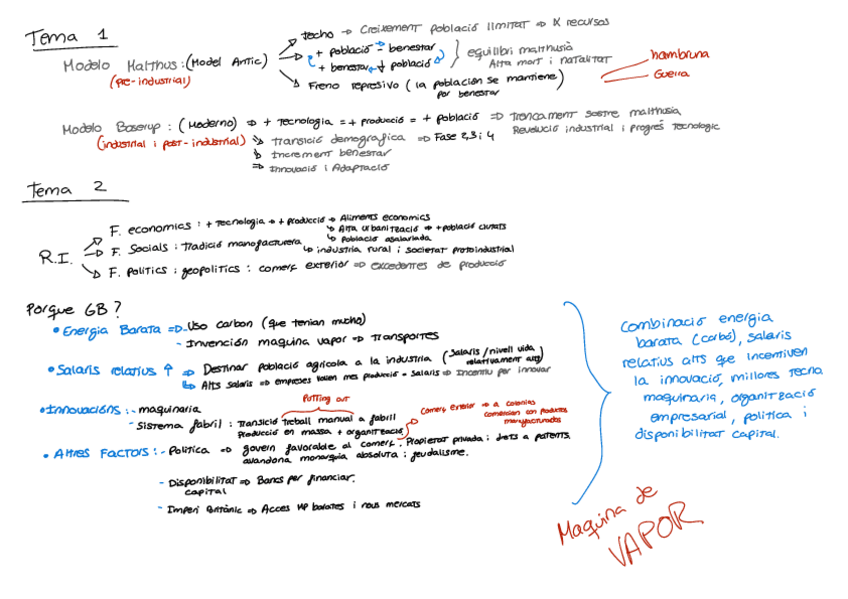 Tema 1
Modelo Malthus: (Model Antic)
(pre-industrial)
techo → Creixement població limitat ⇒ X recursos
+ població → - benestar
+ benestar ← ↓ població
equilibri malthusià
Alta mort i natalitat
Freno represivo (la población se mantiene)
por benestar
hambruna
Guerra
Modelo Boserup: (Moderno) ⇒ + Tecnologia = + producció = + població ⇒ Trencament sostre malthusia,
Revolució industrial i progrés tecnologic
(industrial i post-industrial)
↳ transició demografica ⇒ Fase 2,3 i 4
↳ Increment benestar
⇒ Innovació i Adaptació
Tema 2
R.I.
F. economics : + tecnologia → + producció → Aliments economics
↳ Alta urbanització → + població ciutats
↳ Població asalariada
F. Socials : tradició manofacturera
↳ industria rural i societat protoindustrial
F. Politics : geopolitics : comerç exterior ⇒ excedentes de producció
Porque GB?
• Energia Barata ⇒ - Uso carbon (que tenian mucho)
- Invención maquina vapor ⇒ Transportes
• Salaris relatius ↑ ⇒ Destinar població agricola a la industria (Salaris/nivell vida
relativament alt)
↳ Alts salaris ⇒ empreses volien mes producció - salaris ⇒ Incentiu per innovar
Putting out
• Innovacións: - maquinaria
- Sistema fabril : Transició treball manual a fabril
Producción en massa + organització
Comerç exterior → a colonias
comercian con productos
manufacturados
• Altres Factors: - Politica ⇒ govern favorable al comerç. Propietat privada i drets a patents.
avandona monarquia absoluta i feudalisme.
- Disponibilitat ⇒ Bancs per financiar.
capital
- Imperi Britànic ⇒ Acces MP barates i nous mercats
Combinació energia
barata (carbó), salaris
relatius alts que incentiven
la innovació, millores tecna
maquinaria, organització
empresarial, politica i
disponibilitat capital.
Maquina de
VAPOR